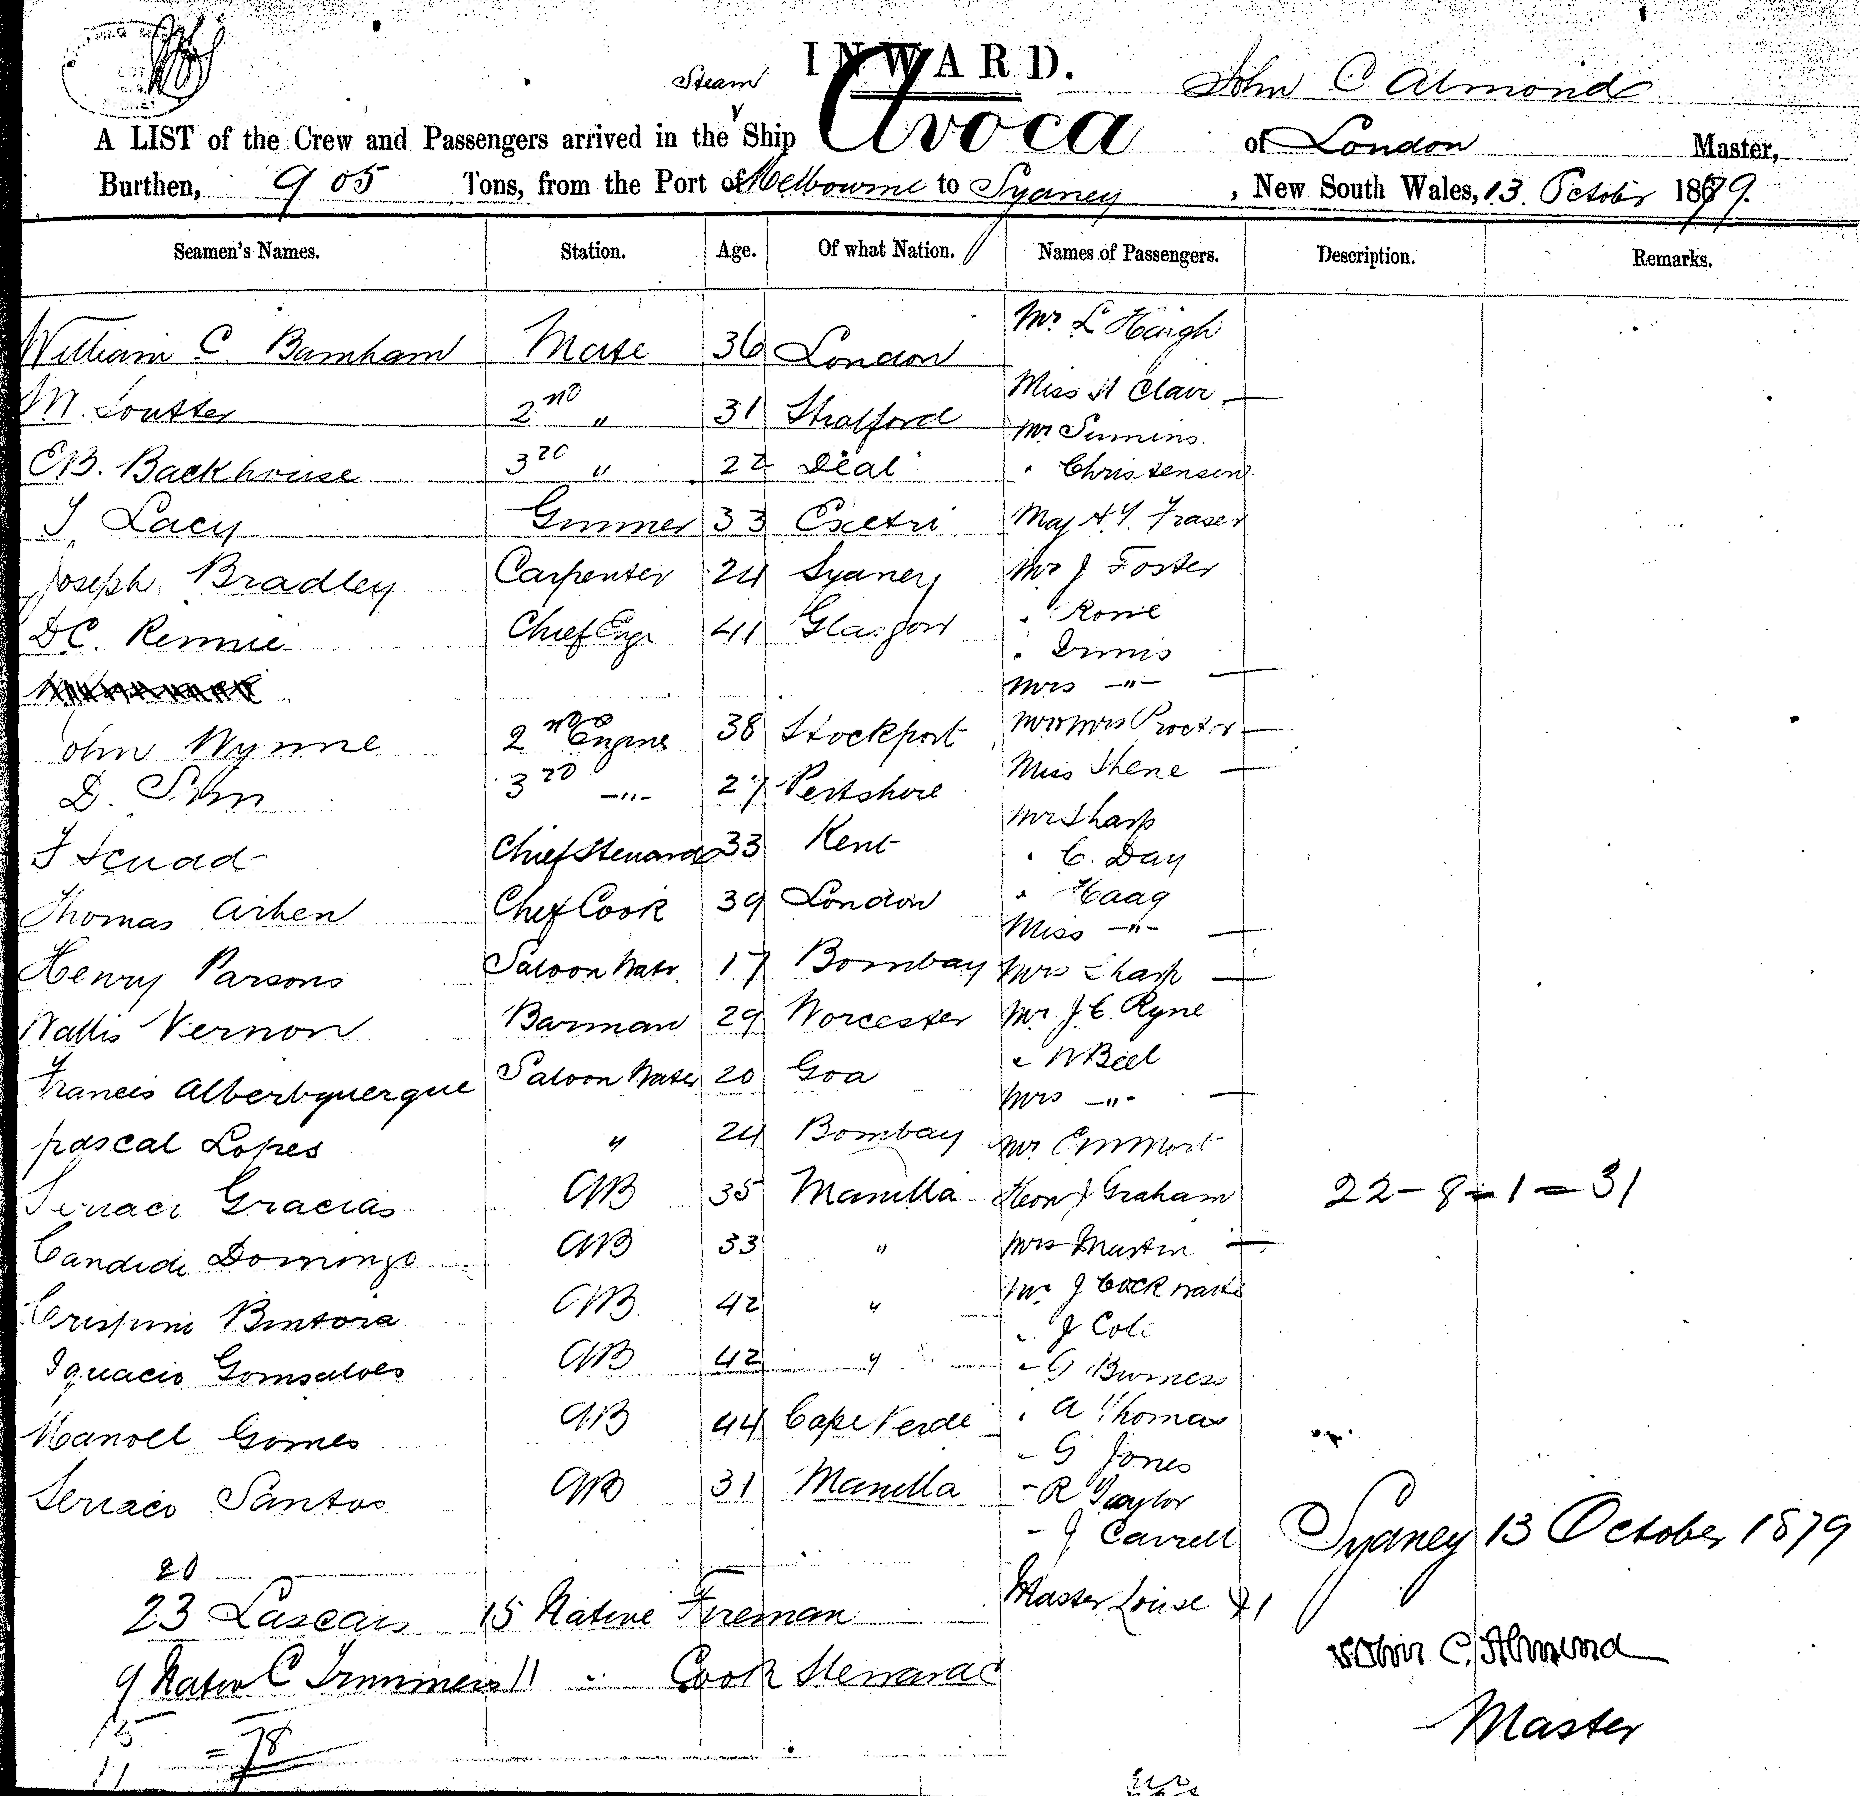 INWARD.
Steam John C Almond
A LIST of the Crew and Passengers arrived in the Ship Avoca of London Master,
Burthen, 905 Tons, from the Port of Melbourne to Sydney, New South Wales, 13 October 1879.
Seamen's Names. Station. Age. Of what Nation. Names of Passengers. Description. Remarks.
Mr L Haigh
William C. Barnham Mate 36 London
Miss H Clair —
M. Soutter 2nd " 31 Stratford
Mr
E.B. Backhouse 3rd " 22 Deal " Christensen
Lacy Gunner 33 Maj A.Y. Fraser
Joseph Bradley Carpenter 24 Sydney Mr J Foster
D C. Rennie Chief Engr 41 Glasgow
Mrs —"— —
John Wynne 2nd Engine 38 Stockport Mr & Mrs Proctor —
D. Sim 3rd —"— 27 Pertshire Miss —
Mr Sharp
Chief Steward 33 Kent " C. Day
Thomas Aiken Chef Cook 39 London " Haag
Miss —"— —
Henry Parsons Saloon Watr 17 Bombay Mrs Sharp —
Wallis Vernon Barman 29 Worcester Mr J. C. Ryne
Francis Alberbyuerque Saloon Water 20 Goa
Mrs —"— —
pascal Lopes " 24 Bombay Mr
Gracias AB 35 Manilla Hon J Graham 22-8-1=31
Candide Domingo AB 33 " Mrs Martin —
AB 42 " Mr J
" J Cole
Ignacio Gomsalves AB 42 " " G Burness
Manoel Gomes AB 44 Cape Verde " A Thomas
" G Jones
Santos AB 31 Manilla " R Taylor
" J Carrell Sydney 13 October 1879
20
23 Lascars 15 Native Fireman Master Louse 1
John C. Almond
9 Native C Trimmers 11 " Cook Steward
Master
15 = 78
11